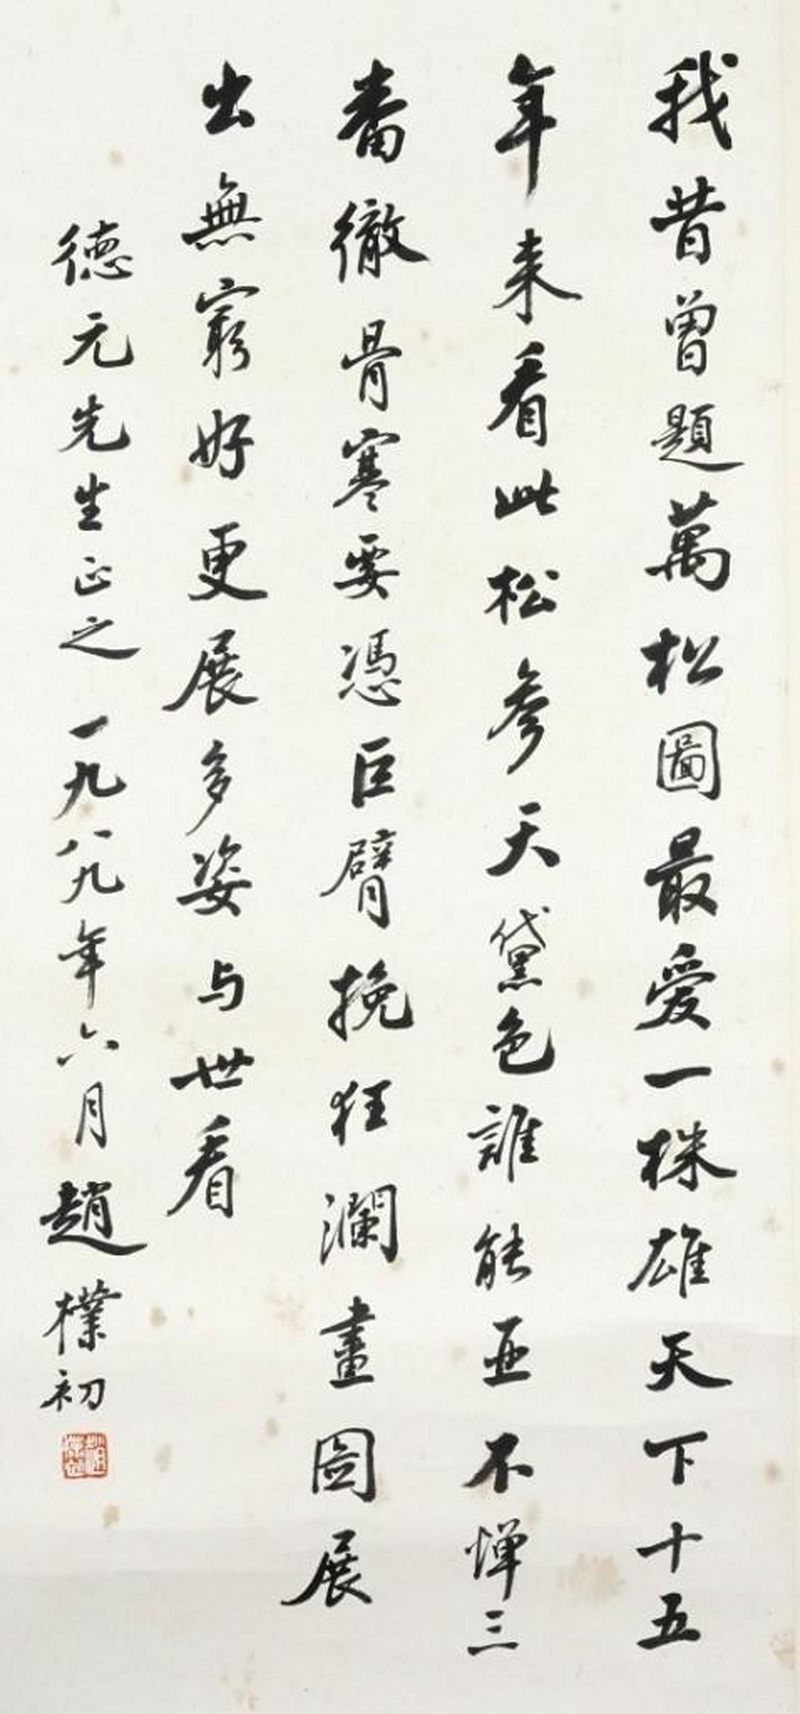 我昔曾題萬松圖最愛一株雄天下十五
年来看此松參天黛色誰能亚不憚三
番徹骨寒要憑巨臂挽狂瀾畫圖展
出無窮好更展多姿与世看
德元先生正之一九八九年六月趙樸初